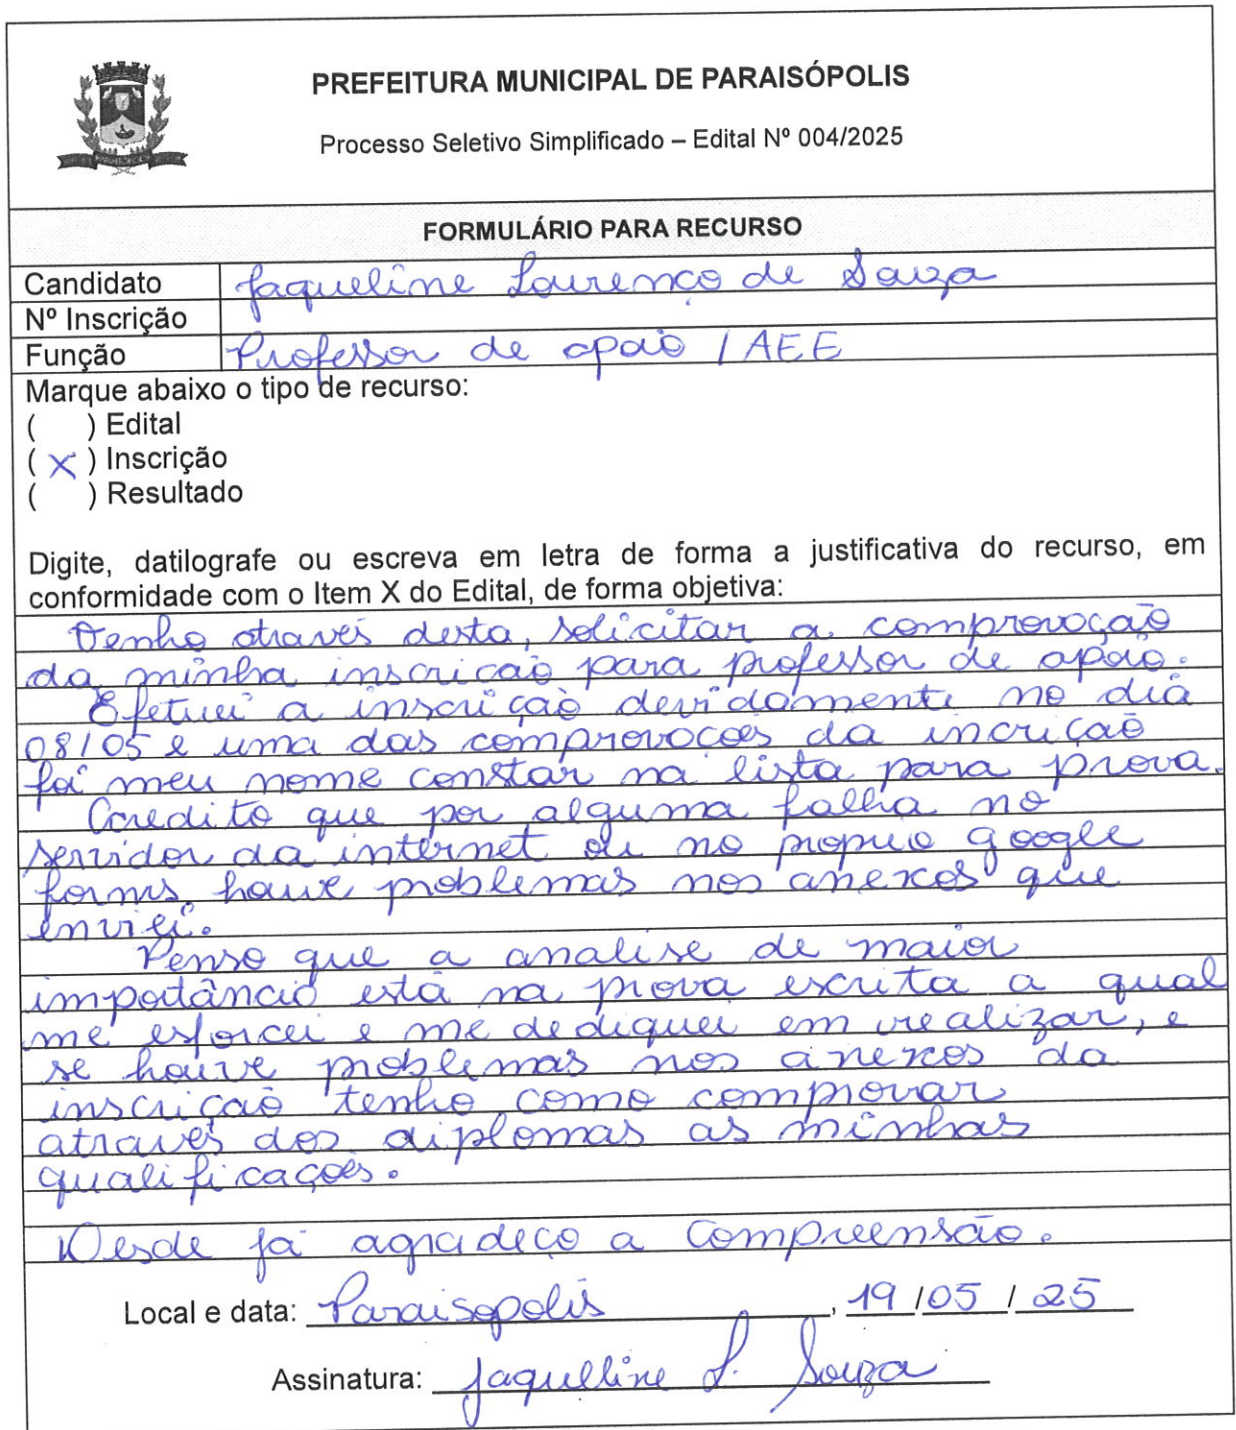 PREFEITURA MUNICIPAL DE PARAISÓPOLIS
Processo Seletivo Simplificado – Edital Nº 004/2025
FORMULÁRIO PARA RECURSO
Candidato Jaqueline Lourenço de Souza
Nº Inscrição
Função Professor de apoio / AEE
Marque abaixo o tipo de recurso:
( ) Edital
( X ) Inscrição
( ) Resultado
Digite, datilografe ou escreva em letra de forma a justificativa do recurso, em
conformidade com o Item X do Edital, de forma objetiva:
Venho através desta, solicitar a comprovação
da minha inscricão para professor de apoio.
Efetuei a inscrição devidamente no dia
08/05 e uma das comprovoções da incrição
foi meu nome constar na lista para prova.
Credito que por alguma falha no
servidor da internet ou no propio google
forms, houve problemas nos anexos que
enviei.
Penso que a analise de maior
importância está na prova escrita a qual
me esforcei e me dediquei em realizar, e
se houve problemas nos anexos da
inscrição tenho como comprovar
através dos diplomas as minhas
qualificações.
Desde já agradeço a Compreensão.
Local e data: Paraisopolis, 19/05/25
Assinatura: Jaquelline L. Souza